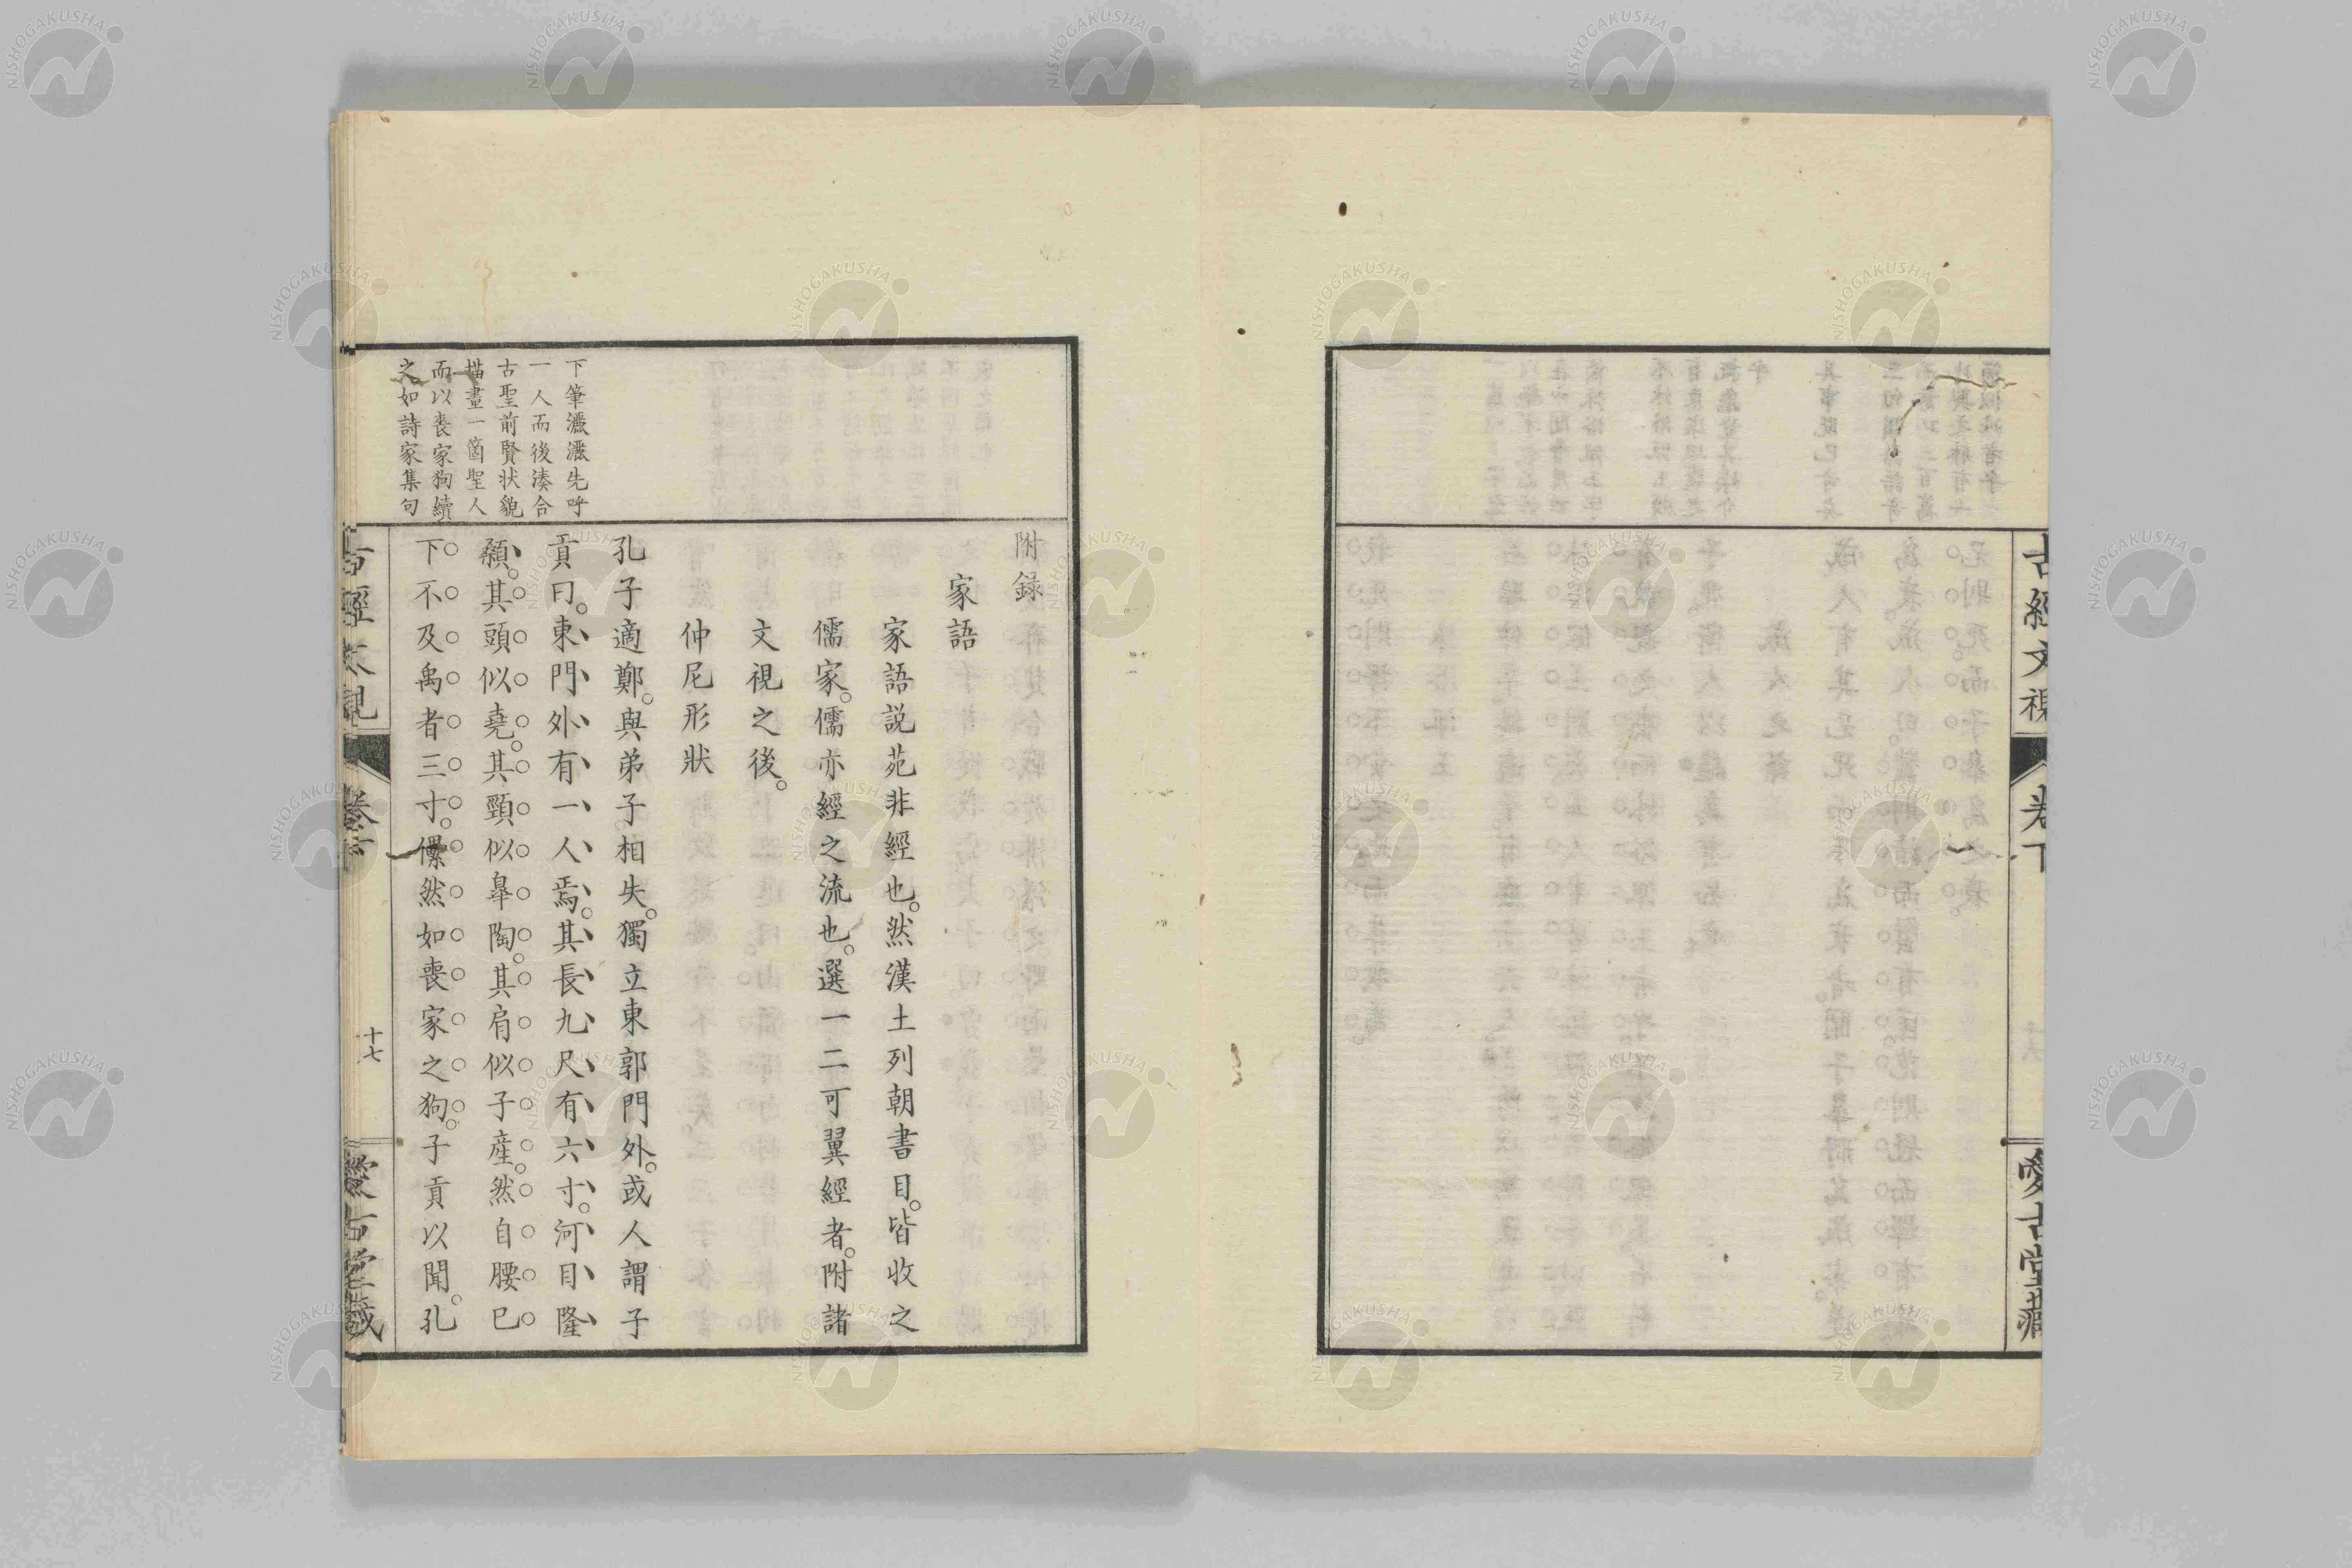 古經文視
卷下
愛古堂藏
附錄
家語
家語説苑非經也。然漢土列朝書目。皆收之
儒家。儒亦經之流也。選一二可翼經者。附諸
文視之後。
仲尼形狀
孔子適鄭。與弟子相失。獨立東郭門外。或人謂子
貢曰。東門外有一人焉。其長九尺有六寸。河目隆
顙。其頭似堯。其頸似皐陶。其肩似子産。然自腰已
下。不及禹者三寸。儽然如喪家之狗。子貢以聞。孔
下筆灑灑先呼
一人而後湊合
古聖前賢狀貌
描畫一箇聖人
而以喪家狗續
之如詩家集句
古經文視
卷下
十七
愛古堂藏
NISHOGAKUSHA